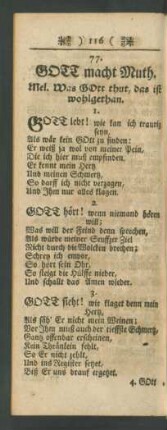 ) 116 (
77.
GOTT macht Muth.
Mel. Was GOtt thut, das ist
wohlgethan.
1.
GOTT lebt! wie kan ich traurig
seyn,
Als wär kein GOtt zu finden:
Er weiß ja wol von meiner Pein,
Die ich hier muß empfinden.
Er kennt mein Hertz
Und meinen Schmertz,
So darf ich nicht verzagen,
Und Ihm nur alles klagen.
2.
GOTT hört! wenn niemand hören
will;
Was will der Feind denn sprechen,
Als würde meiner Seuffzer Ziel
Nicht durch die Wolcken brechen;
Schrey ich empor,
So hört sein Ohr,
So steigt die Hülffe nieder,
Und schallt das Amen wieder.
3.
GOTT sieht! wie klaget denn mein
Hertz,
Als säh' Er nicht mein Weinen;
Vor Ihm muß auch der tieffste Schmertz
Gantz offenbar erscheinen.
Kein Thränlein fehlt,
So Er nicht zehlt,
Und ins Register setzet,
Biß Er uns drauf ergetzet.
4. GOtt